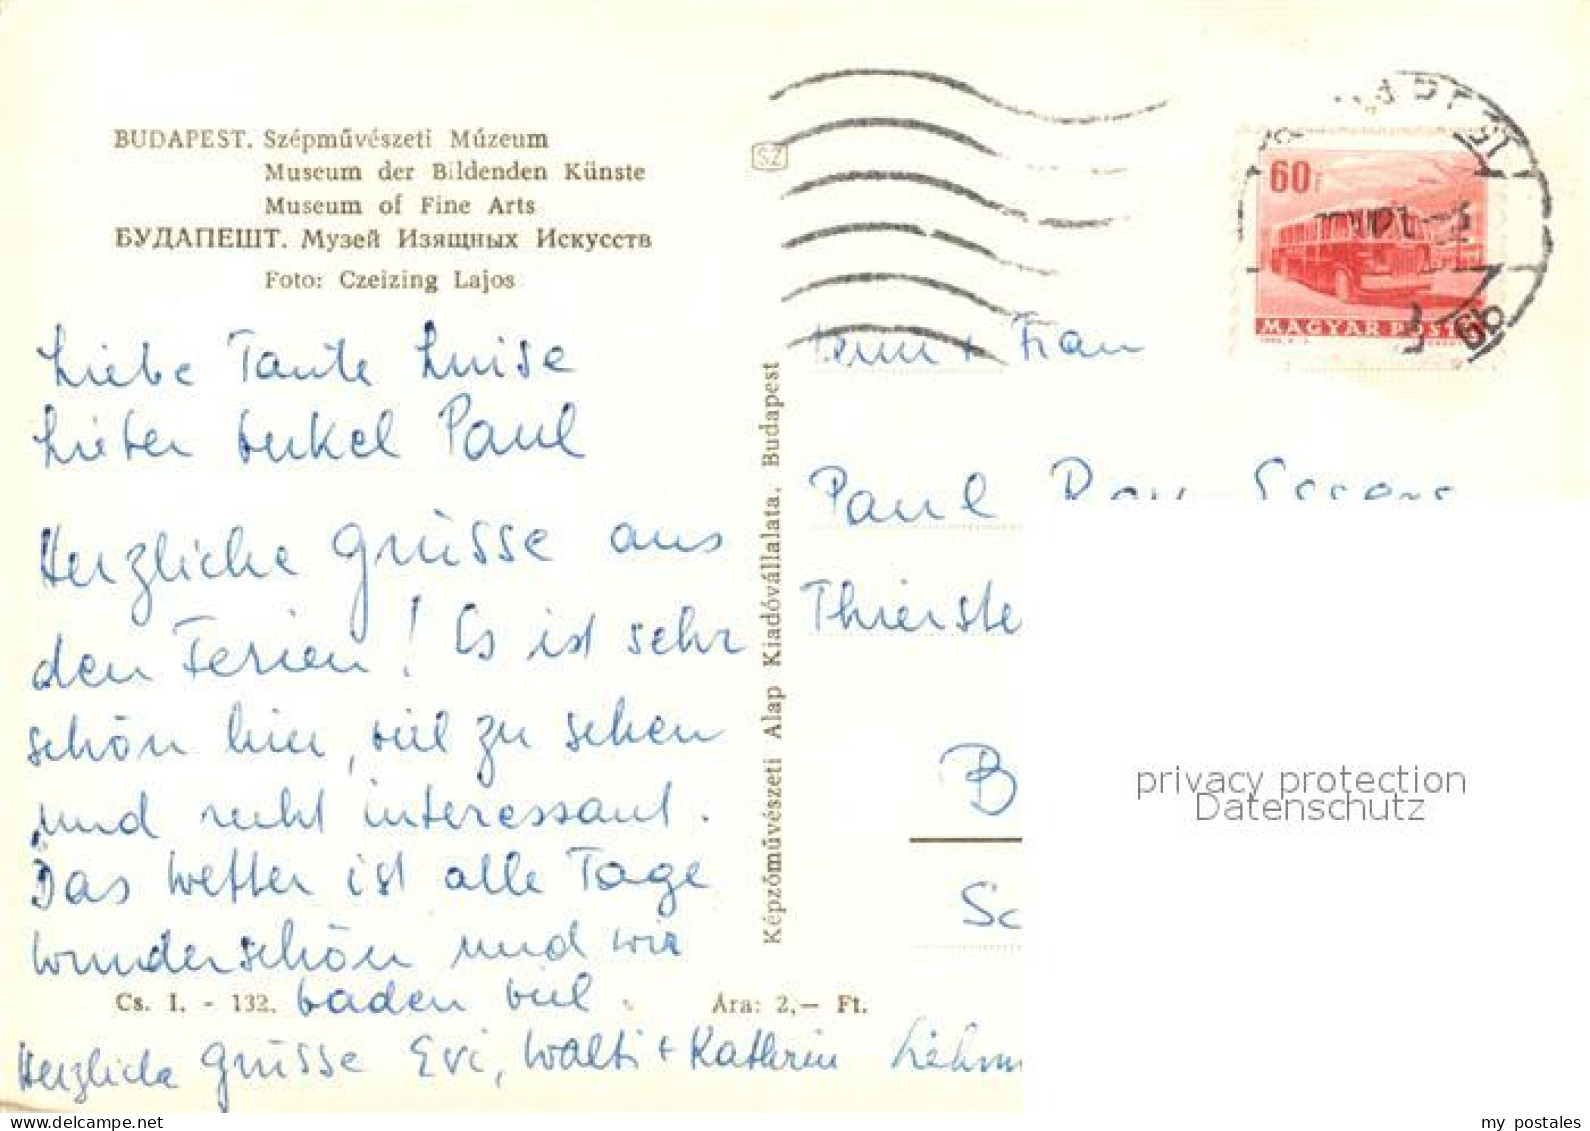 BUDAPEST. Szépművészeti Múzeum
Museum der Bildenden Künste
Museum of Fine Arts
БУДАПЕШТ. Музей Изящных Искусств
Foto: Czeizing Lajos
Liebe Tante Luise
Lieber Onkel Paul
Herzliche Grüsse aus
den Ferien! Es ist sehr
schön hier, viel zu sehen
und recht interessant.
Das Wetter ist alle Tage
wunderschön und wir
baden viel.
Herzliche Grüsse Evi, Walti + Kathrin
Cs. I. - 132.
Ára: 2,— Ft.
Képzőművészeti Alap Kiadóvállalata, Budapest
SZ
60f
MAGYAR POSTA
6b
+ Frau
Paul
Thierste
B
Sc
privacy protection
Datenschutz
my postales